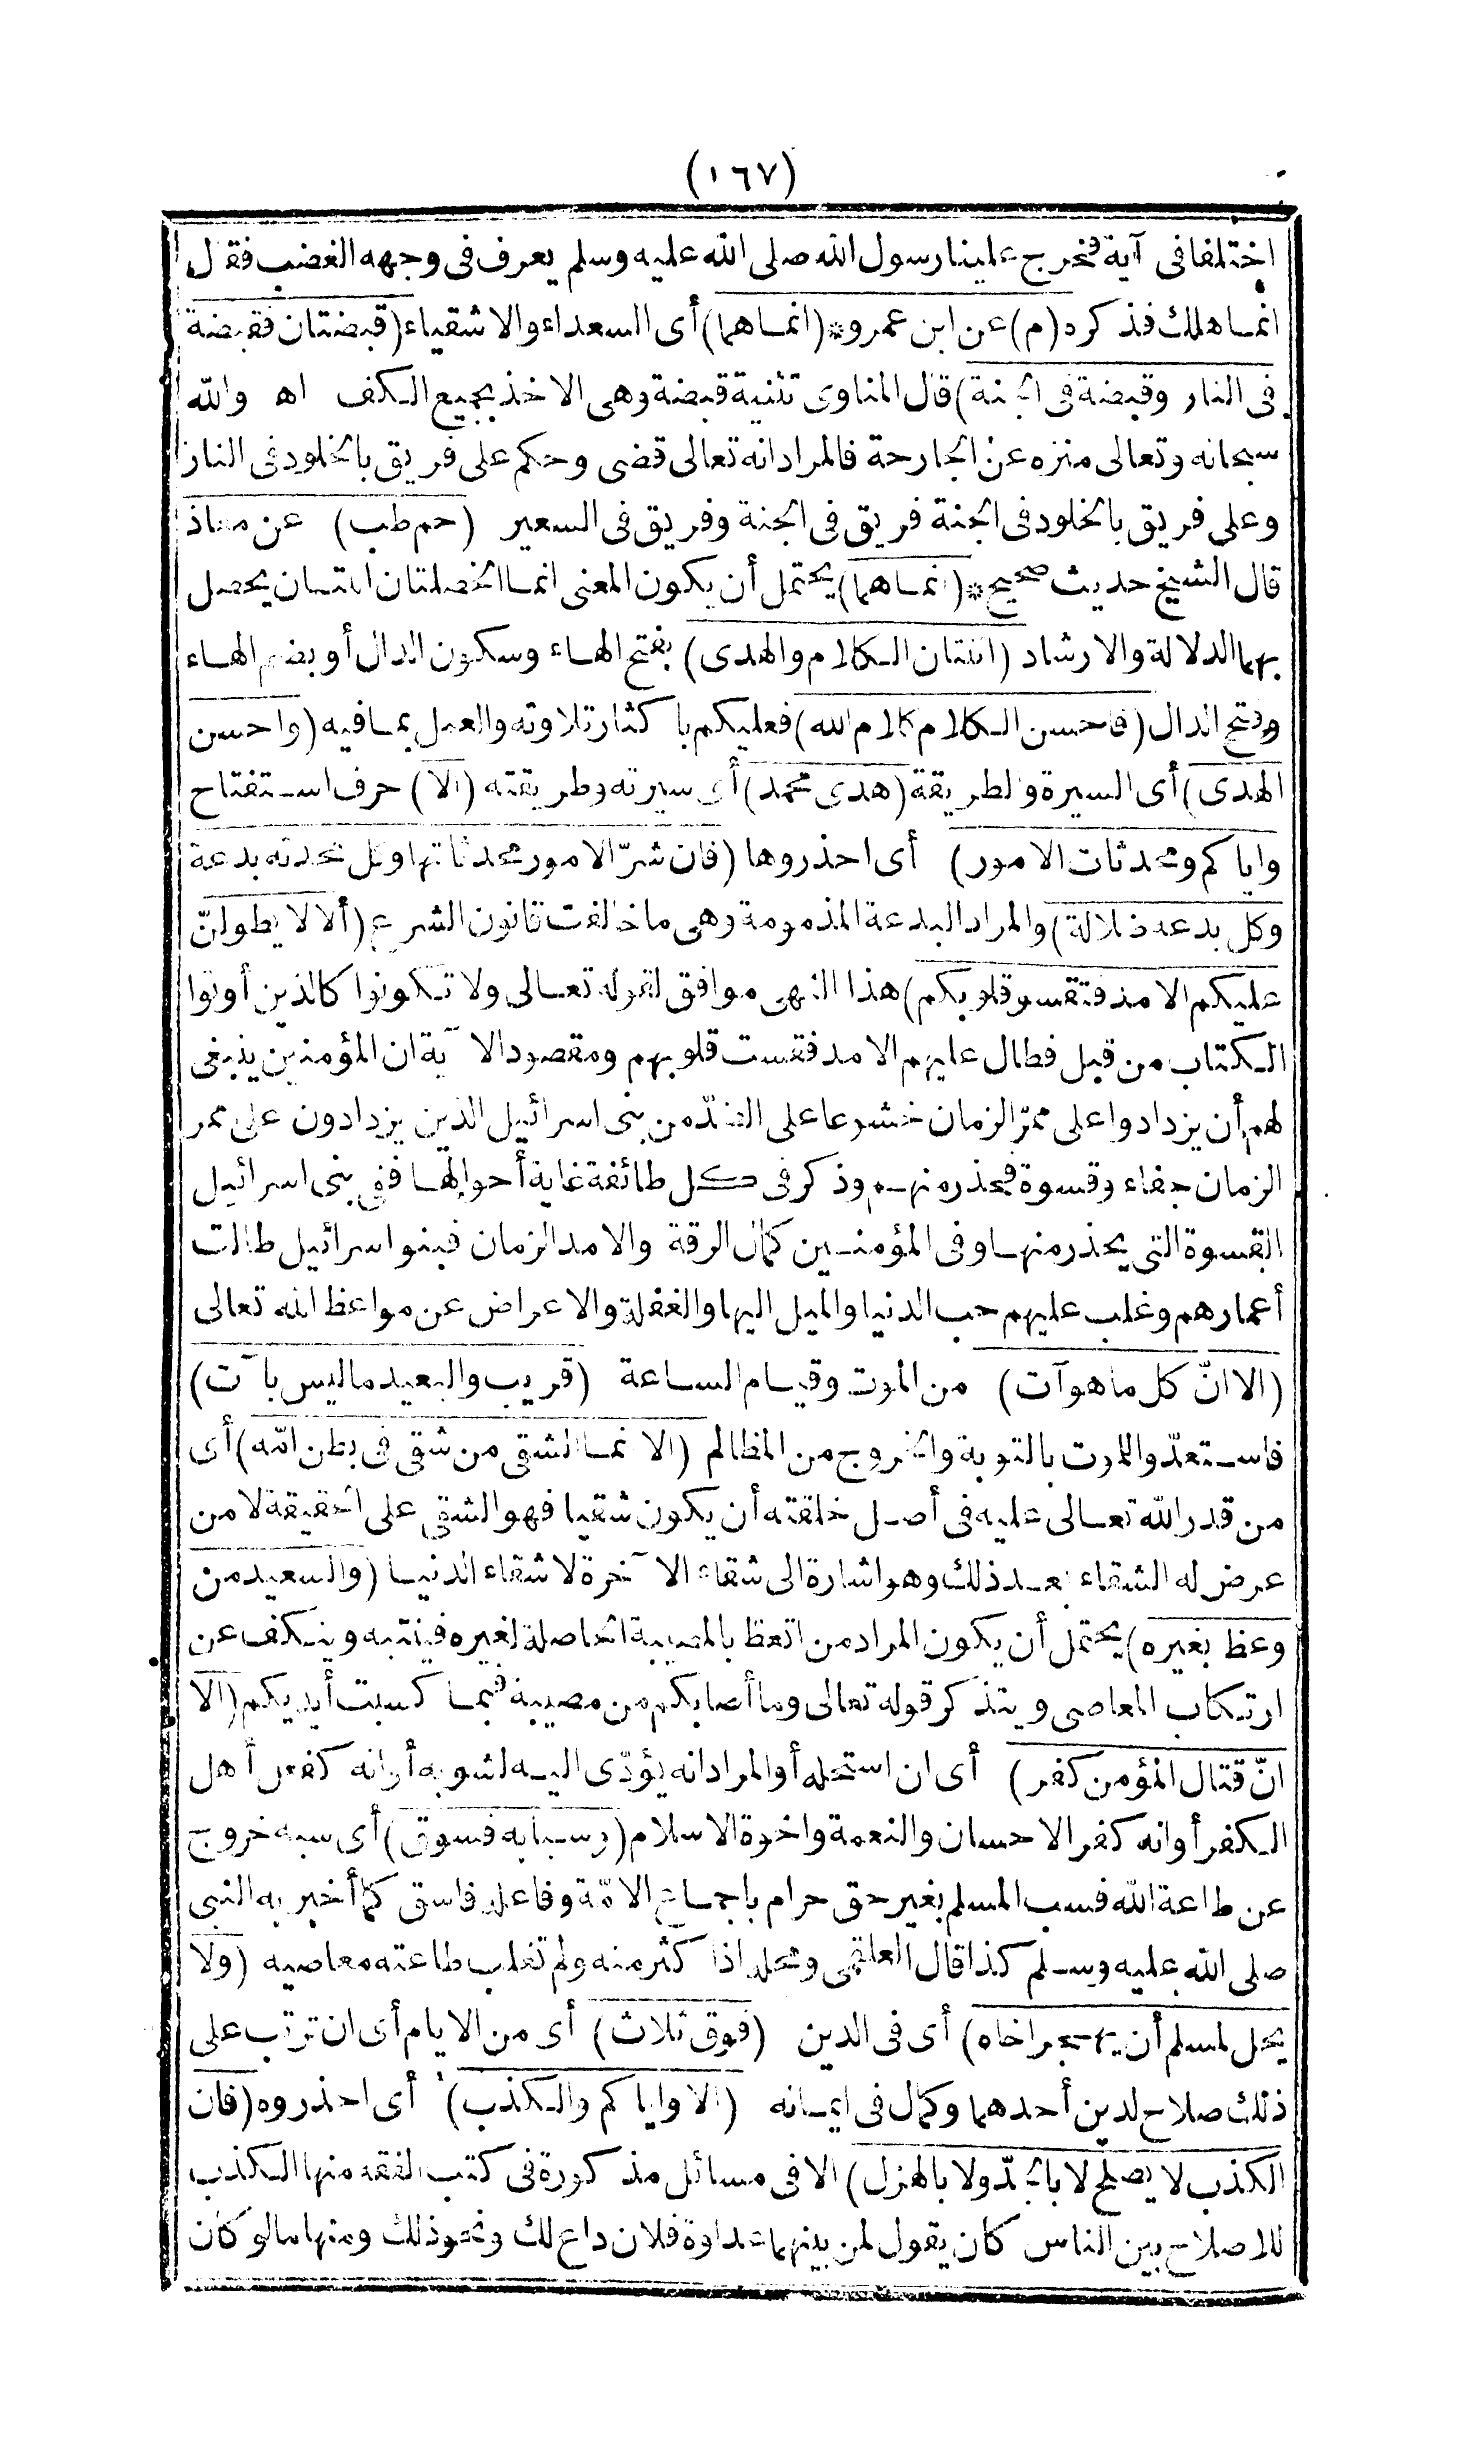 (١٦٧)
اختلفا فى آية فخرج علينا رسول الله صلى الله عليه وسلم يعرف فى وجهه الغضب فقال
انما هلك فذكره (م) عن ابن عمرو * (انما هما) أى السعداء والاشقياء (قبضتان فقبضة
فى النار وقبضة فى الجنة) قال المناوى تثنية قبضة وهى الاخذ بجميع الكف اه والله
سبحانه وتعالى منزه عن الجارحة فالمراد انه تعالى قضى وحكم على فريق بالخلود فى النار
وعلى فريق بالخلود فى الجنة فريق فى الجنة وفريق فى السعير (حم طب) عن معاذ
قال الشيخ حديث صحيح * (انما هما) يحتمل أن يكون المعنى انما الخصلتان اللتان يحصل
بهما الدلالة والارشاد (اثنتان الكلام والهدى) بفتح الهاء وسكون الدال أو بضم الهاء
وفتح الدال (فاحسن الكلام كلام الله) فعليكم باكثار تلاوته والعمل بما فيه (واحسن
الهدى) أى السيرة والطريقة (هدى محمد) أى سيرته وطريقته (ألا) حرف استفتاح
واياكم ومحدثات الامور) أى احذروها (فان شرّ الامور محدثاتها وكل محدثة بدعة
وكل بدعة ضلالة) والمراد البدعة المذمومة وهى ما خالفت قانون الشرع (ألا لا يطولنّ
عليكم الامد فتقسو قلوبكم) هذا النهى موافق لقوله تعالى ولا تكونوا كالذين أوتوا
الكتاب من قبل فطال عليهم الامد فقست قلوبهم ومقصود الآية ان المؤمنين ينبغى
لهم أن يزدادوا على ممرّ الزمان خشوعا على الضدّ من بنى اسرائيل الذين يزدادون على ممر
الزمان جفاء وقسوة فيحذر منهم وذكر فى كل طائفة غاية أحوالها ففى بنى اسرائيل
القسوة التى يحذر منها وفى المؤمنين كمال الرقة والامد الزمان فبنو اسرائيل طالت
أعمارهم وغلب عليهم حب الدنيا والميل اليها والغفلة والاعراض عن مواعظ الله تعالى
(الا انّ كل ما هو آت) من الموت وقيام الساعة (قريب والبعيد ما ليس بآت)
فاستعدّوا للموت بالتوبة والخروج من المظالم (الا انما الشقى من شقى فى بطن امّه) أى
من قدر الله تعالى عليه فى أصل خلقته أن يكون شقيا فهو الشقى على الحقيقة لا من
عرض له الشقاء بعد ذلك وهو اشارة الى شقاء الآخرة لا شقاء الدنيا (والسعيد من
وعظ بغيره) يحتمل أن يكون المراد من اتعظ بالمصيبة الحاصلة لغيره فينتبه وينكف عن
ارتكاب المعاصى ويتذكر قوله تعالى وما أصابكم من مصيبة فبما كسبت أيديكم (الا
انّ قتال المؤمن كفر) أى ان استحله أو المراد انه يؤدّى اليه لشومه أو انه كفعل أهل
الكفر أو انه كفر الاحسان والنعمة واخوة الاسلام (وسبابه فسوق) أى سبه خروج
عن طاعة الله فسب المسلم بغير حق حرام باجماع الامّة وفاعله فاسق كما أخبر به النبى
صلى الله عليه وسلم كذا قال العلقمى ومحله اذا كثر منه ولم تغلب طاعته معاصيه (ولا
يحل لمسلم أن يهجر اخاه) أى فى الدين (فوق ثلاث) أى من الايام أى ان ترتب على
ذلك صلاح لدين أحدهما وكمال فى ايمانه (الا واياكم والكذب) أى احذروه (فان
الكذب لا يصلح لا بالجدّ ولا بالهزل) الا فى مسائل مذكورة فى كتب الفقه منها الكذب
للاصلاح بين الناس كان يقول لمن بينهما عداوة فلان داع لك ونحو ذلك ومنها ما لو كان